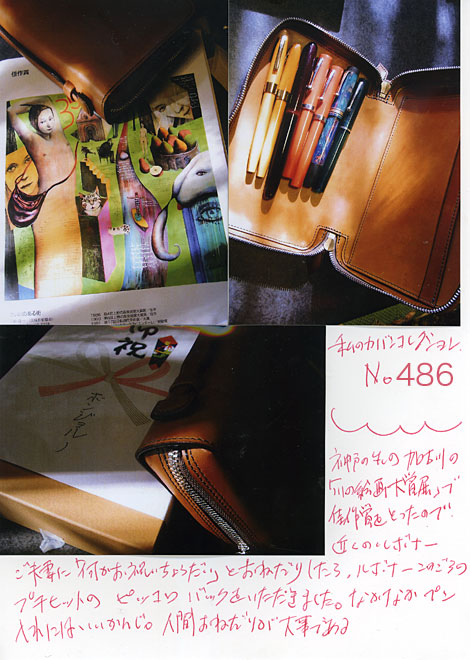 佳作賞
御祝
ボンジョルノ
私のカバンコレクション.
No 486
神戸の先の加古川の
「川の絵画大賞展」で
佳作賞をとったので
近くのルボナー
ご夫妻に「何かお祝いちょうだい」とおねだりしたら、ルボナーのごろの
プチヒットの ピッコロ バックをいただきました。なかなかペン
入れにはいいかんじ。人間おねだりが大事である